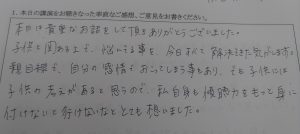 1. 本日の講演をお聴きなった率直なご感想、ご意見をお書きください。
本日は貴重なお話をして頂きありがとうございました。
子供と関わる上で、悩んでる事も、今日お話で解決できた気がします。
親目線で、自分の感情でおこってしまう事もあり、でも子供には
子供の考えがあると思うので、私自身も傾聴力をもっと身に
付けないと行けないなととても想いました。